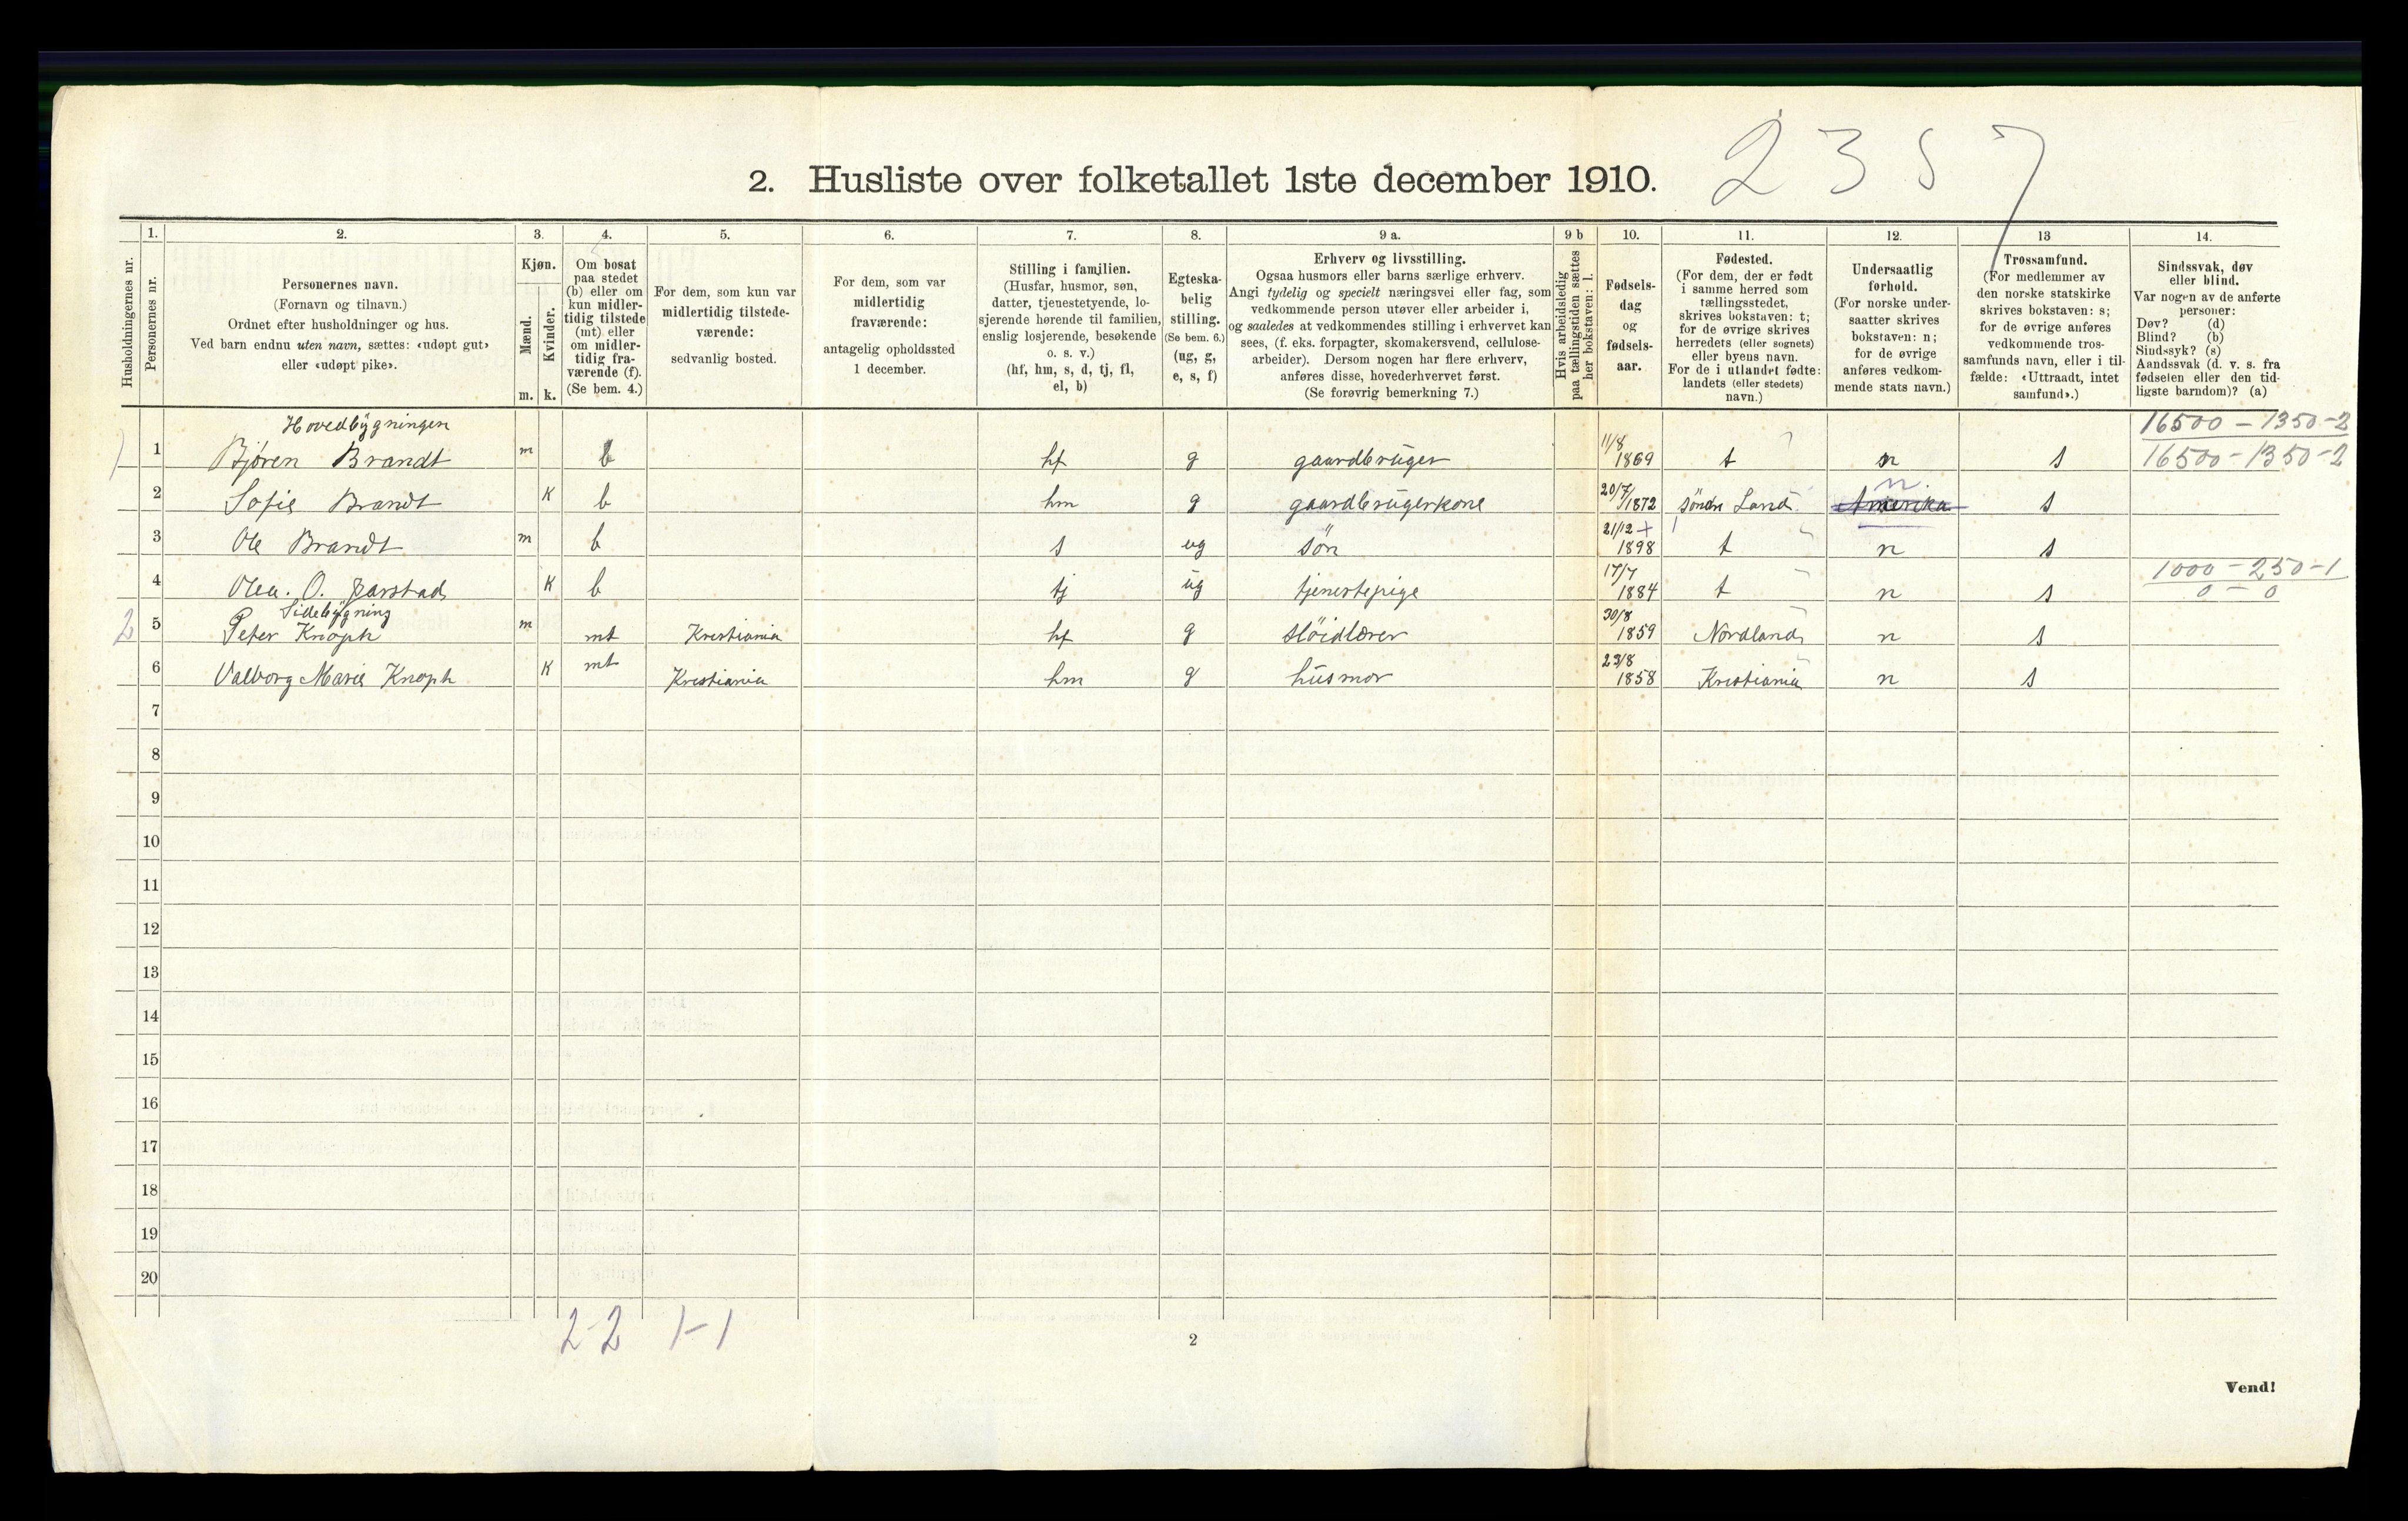 2 3 5 7
2. Husliste over folketallet 1ste december 1910.
Husholdningernes nr.
1. Personernes nr.
2.
Personernes navn.
(Fornavn og tilnavn.)
Ordnet efter husholdninger og hus.
Ved barn endnu uten navn, sættes: «udøpt gut»
eller «udøpt pike».
3.
Kjøn.
Mænd.
Kvinder.
m. k.
4.
Om bosat
paa stedet
(b) eller om
kun midler-
tidig tilstede
(mt) eller
om midler-
tidig fra-
værende (f).
(Se bem. 4.)
5.
For dem, som kun var
midlertidig tilstede-
værende:
sedvanlig bosted.
6.
For dem, som var
midlertidig
fraværende:
antagelig opholdssted
1 december.
7.
Stilling i familien.
(Husfar, husmor, søn,
datter, tjenestetyende, lo-
sjerende hørende til familien,
enslig losjerende, besøkende
o. s. v.)
(hf, hm, s, d, tj, fl,
el, b)
8.
Egteska-
belig
stilling.
(Se bem. 6.)
(ug, g,
e, s, f)
9 a.
Erhverv og livsstilling.
Ogsaa husmors eller barns særlige erhverv.
Angi tydelig og specielt næringsvei eller fag, som
vedkommende person utøver eller arbeider i,
og saaledes at vedkommendes stilling i erhvervet kan
sees, (f. eks. forpagter, skomakersvend, cellulose-
arbeider). Dersom nogen har flere erhverv,
anføres disse, hovederhvervet først.
(Se forøvrig bemerkning 7.)
9 b
Hvis arbeidsledig
paa tællingstiden sættes
her bokstaven: l.
10.
Fødsels-
dag
og
fødsels-
aar.
11.
Fødested.
(For dem, der er født
i samme herred som
tællingsstedet,
skrives bokstaven: t;
for de øvrige skrives
herredets (eller sognets)
eller byens navn.
For de i utlandet fødte:
landets (eller stedets)
navn.)
12.
Undersaatlig
forhold.
(For norske under-
saatter skrives
bokstaven: n;
for de øvrige
anføres vedkom-
mende stats navn.)
13
Trossamfund.
(For medlemmer av
den norske statskirke
skrives bokstaven: s;
for de øvrige anføres
vedkommende tros-
samfunds navn, eller i til-
fælde: «Uttraadt, intet
samfund».)
14.
Sindssvak, døv
eller blind.
Var nogen av de anførte
personer:
Døv? (d)
Blind? (b)
Sindssyk? (s)
Aandssvak (d. v. s. fra
fødselen eller den tid-
ligste barndom)? (a)
Hovedbygningen 16500 - 1350-2
1 Bjøren Brandt m b hf g gaardbruger 11/8 1869 t n s 16500-1350-2
n.
2 Sofie Brandt K b hm g gaardbrugerkone 20/7 1872 Søndre Land Amerika s
3 Ole Brandt m b s ug søn 21/12 + 1898 t n s
1000-250-1
4 K b tj ug tjenestepige 17/7 1884 t n s 0 - 0
Sidebygning
2 5 Peter Knoph m mt Kristiania hf g sløidlærer 30/8 1859 Nordland n s
6 Valborg Marie Knoph K mt Kristiania hm g husmor 23/8 1858 Kristiania n s
7
8
9
10
11
12
13
14
15
16
17
18
19
20
2-2 1-1
2
Vend!